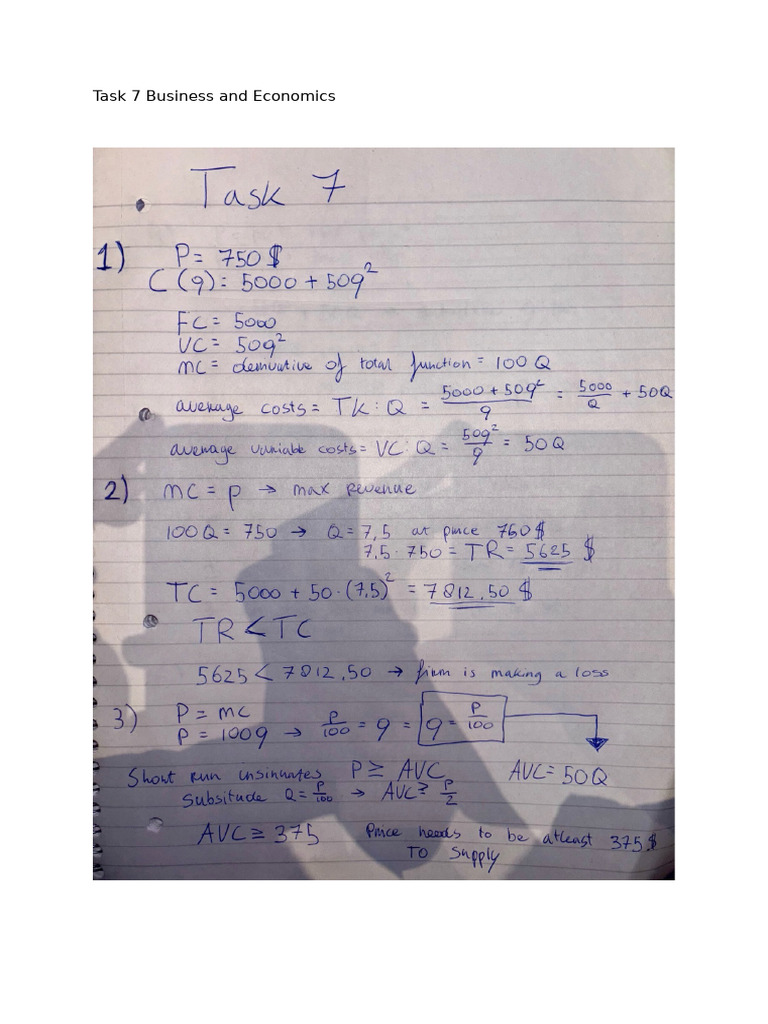 Task 7 Business and Economics
Task 7
1) P = 750$
C(q) = 5000 + 50q²
FC = 5000
VC = 50q²
MC = derivative of total function = 100 Q
average costs = TK : Q = (5000 + 50q²)/q = 5000/Q + 50Q
average variable costs = VC : Q = 50q²/q = 50 Q
2) MC = p → max revenue
100 Q = 750 → Q = 7,5 at price 750$
7,5 · 750 = TR = 5625 $
TC = 5000 + 50 · (7,5)² = 7812,50 $
TR < TC
5625 < 7812,50 → firm is making a loss
3) P = MC
P = 100q → P/100 = q = q = P/100
Short run insinuates P ≥ AVC AVC = 50Q
Subsitude Q = P/100 → AVC ≥ P/2
AVC ≥ 375 Price needs to be atleast 375$
TO Supply